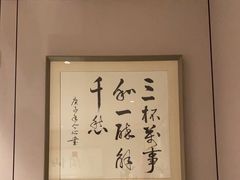 三杯万事
和一醉解
千愁